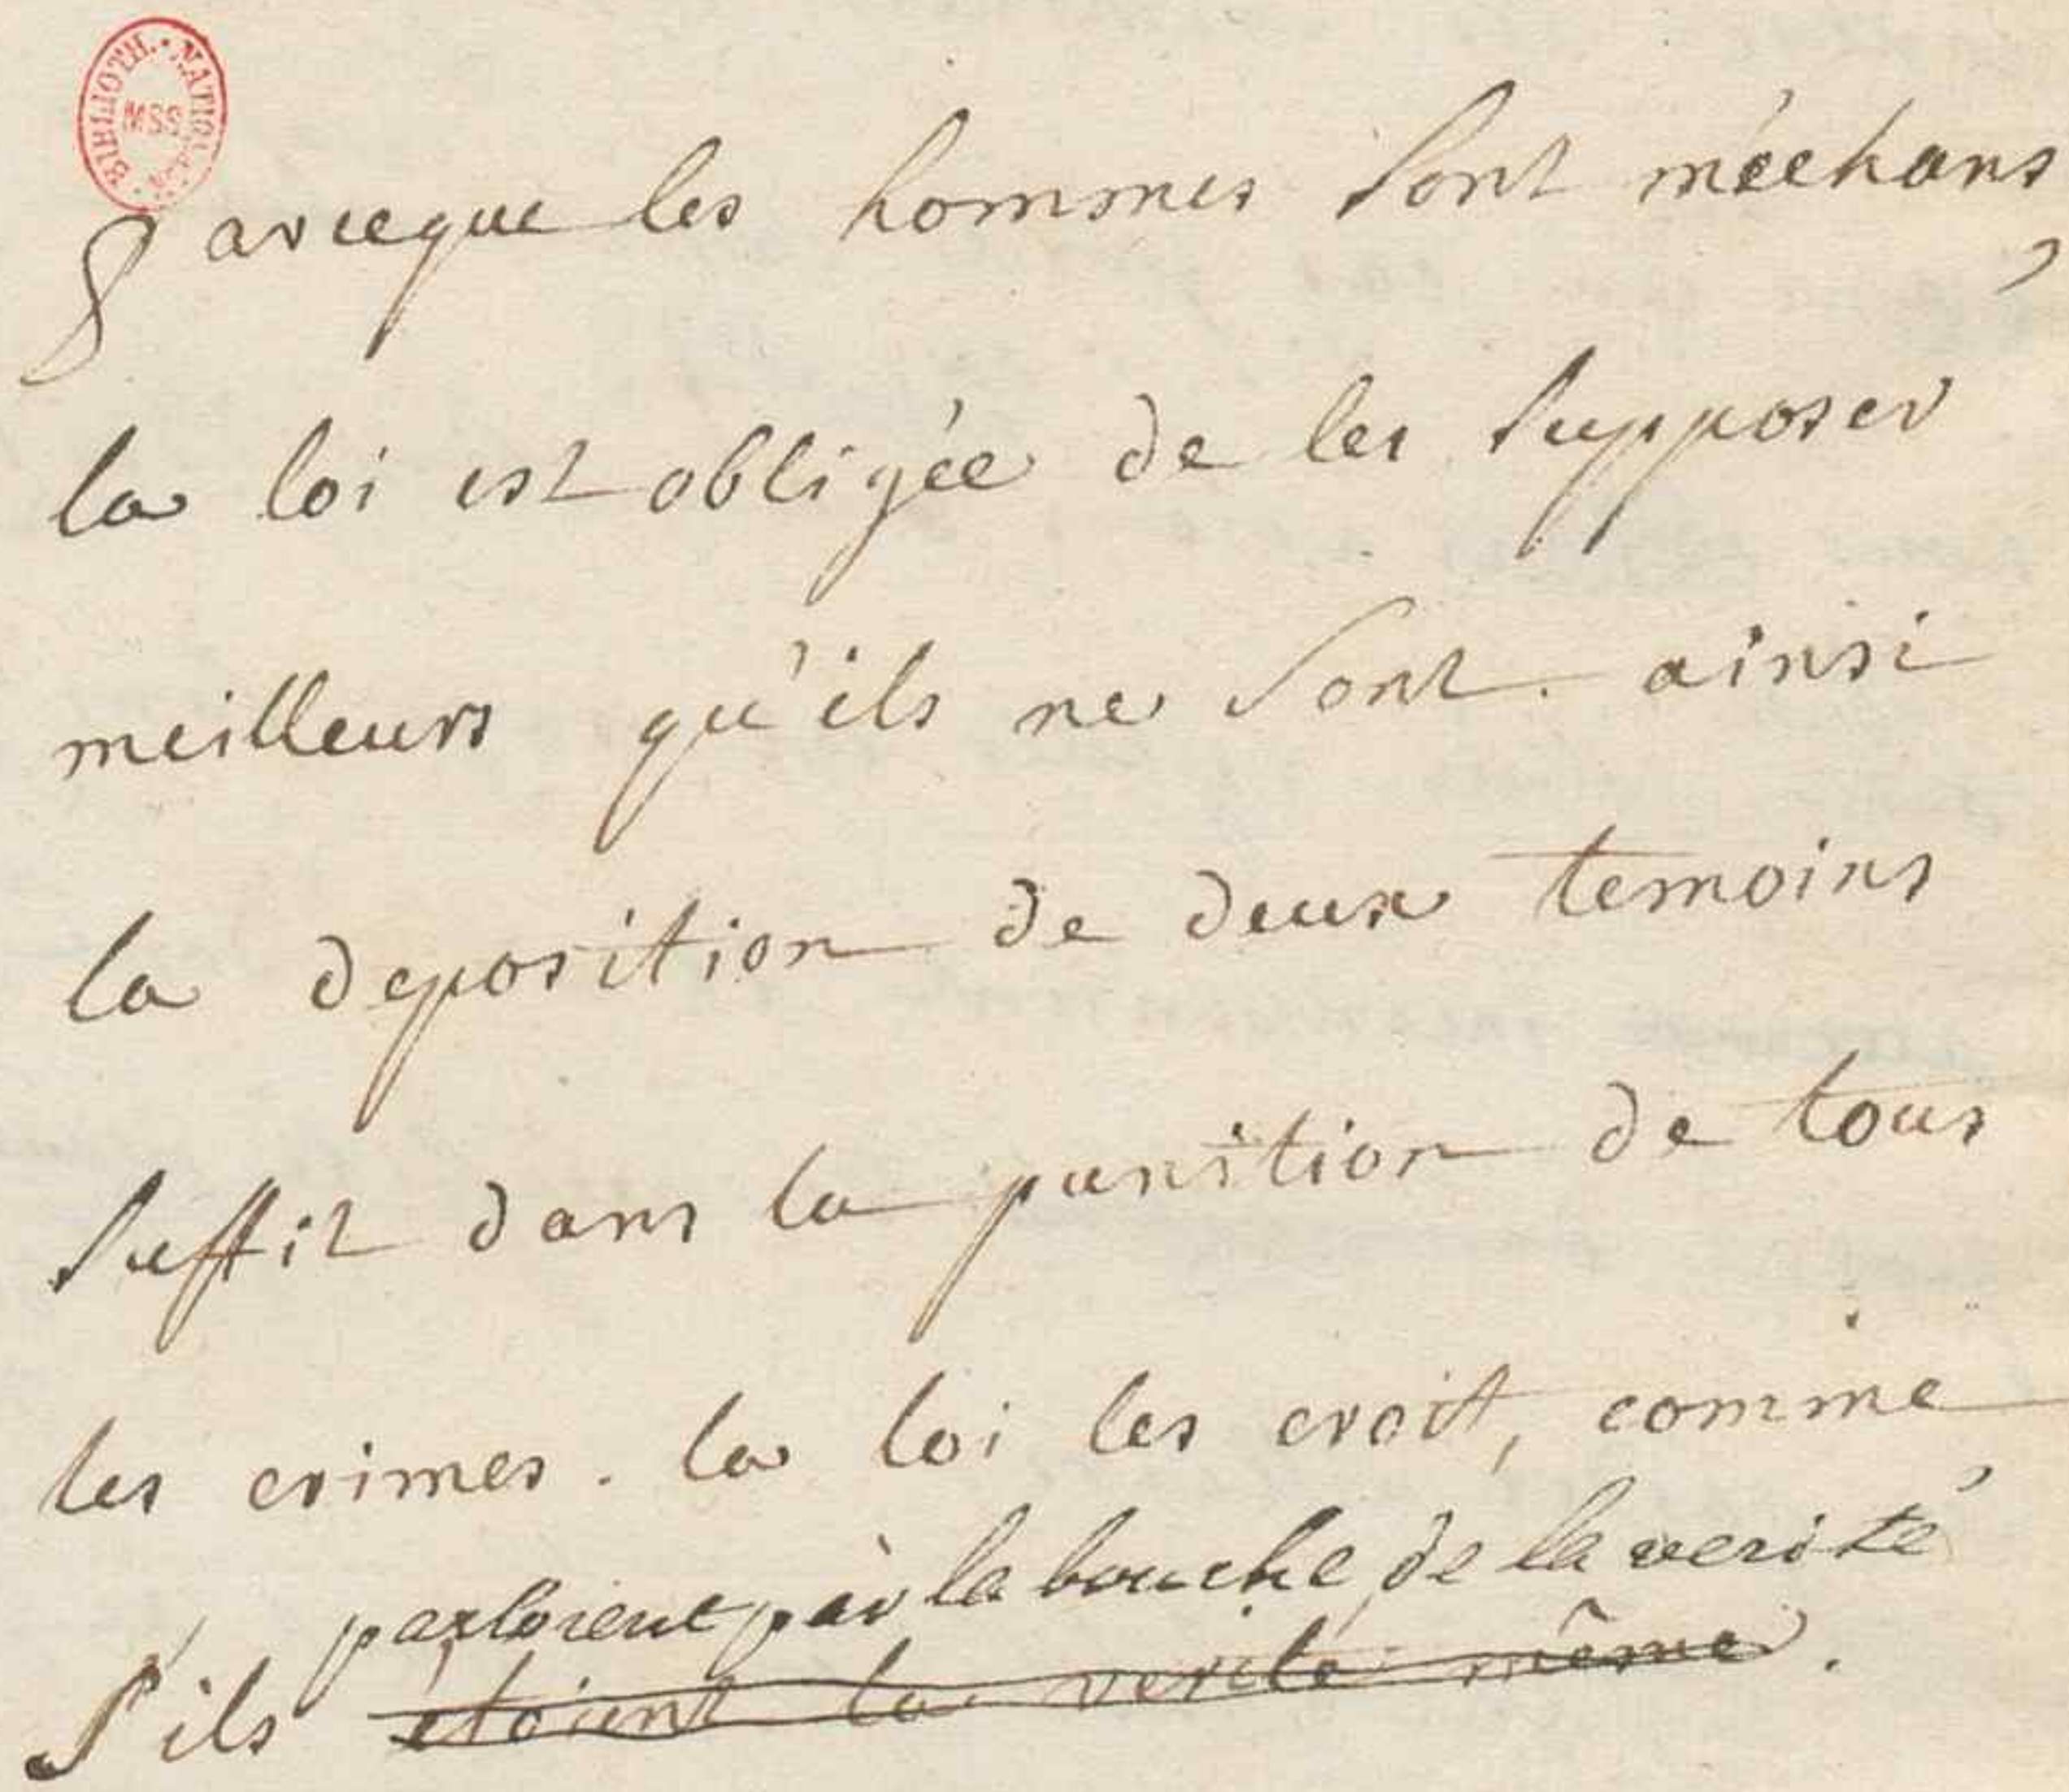 BIBLIOTH. NATIONALE
MSS
Parceque les hommes sont méchans,
la loi est obligée de les supposer
meilleurs qu'ils ne sont. ainsi
la deposition de deux temoins
suffit dans la punition de tous
les crimes. la loi les croit, comme
parloient par la bouche de la verité
s'ils étoient la verité même.